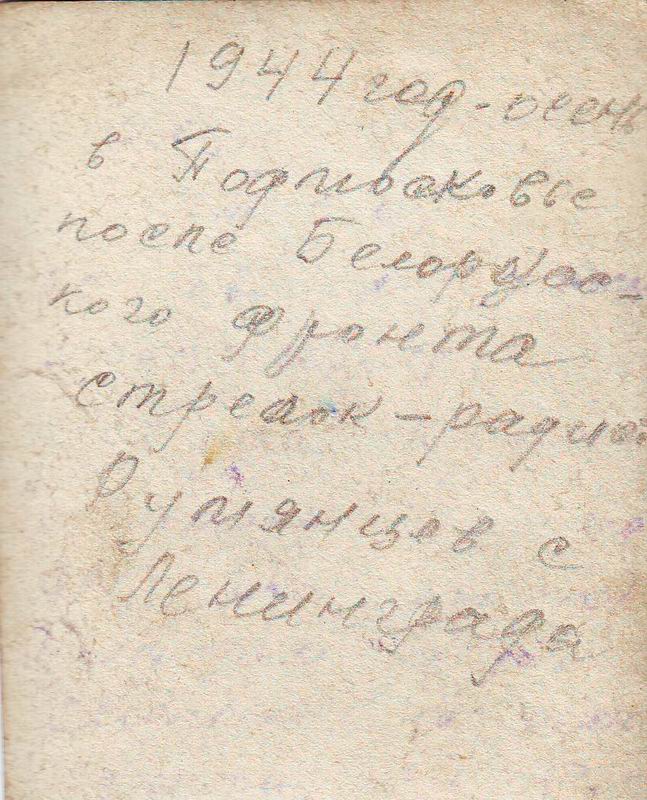 1944 год - осень
в Подмосковье
после Белорус-
кого фронта
стрелок - радист
Румянцев с
Ленинграда